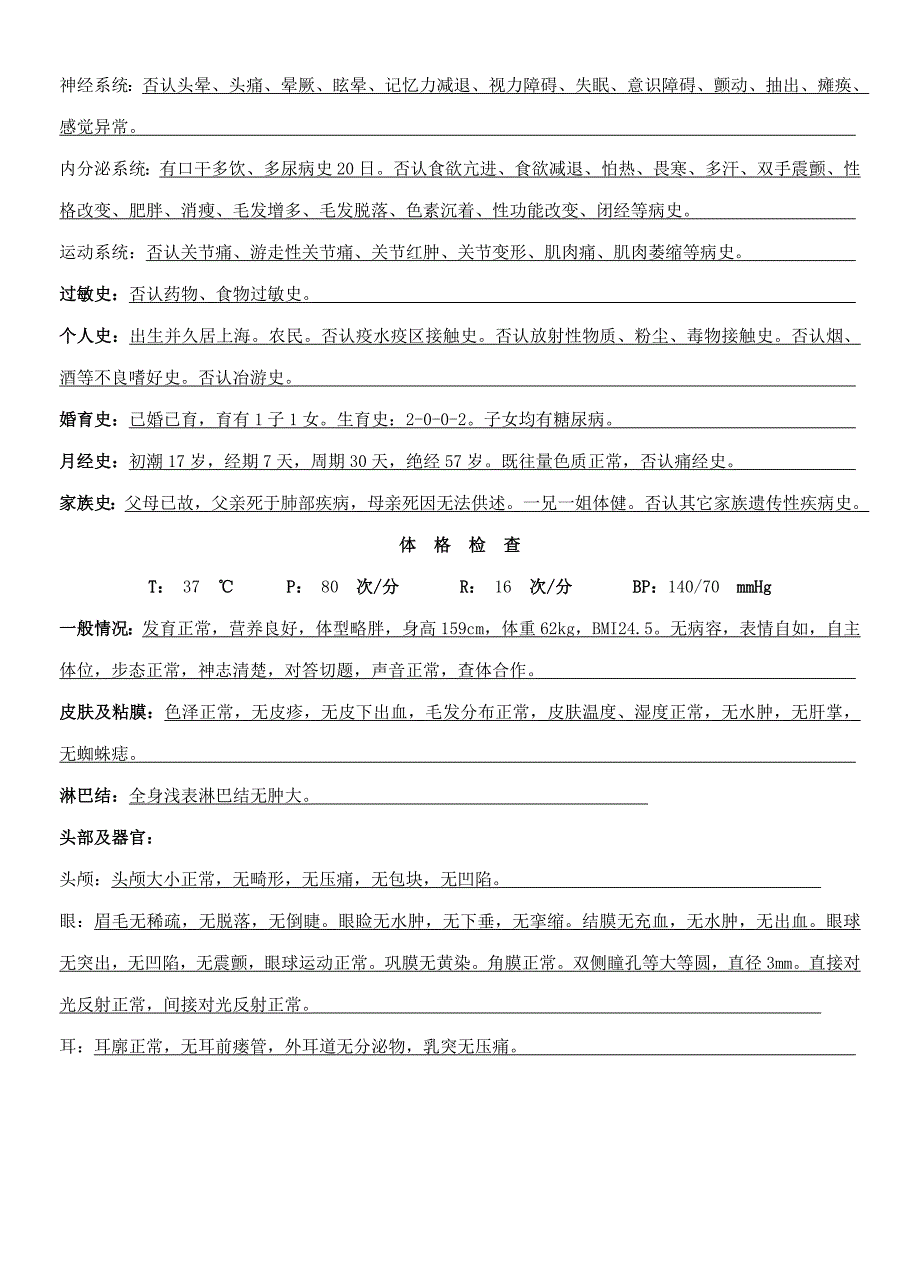 神经系统：否认头晕、头痛、晕厥、眩晕、记忆力减退、视力障碍、失眠、意识障碍、颤动、抽出、瘫痪、
感觉异常。
内分泌系统：有口干多饮、多尿病史20日。否认食欲亢进、食欲减退、怕热、畏寒、多汗、双手震颤、性
格改变、肥胖、消瘦、毛发增多、毛发脱落、色素沉着、性功能改变、闭经等病史。
运动系统：否认关节痛、游走性关节痛、关节红肿、关节变形、肌肉痛、肌肉萎缩等病史。
过敏史：否认药物、食物过敏史。
个人史：出生并久居上海。农民。否认疫水疫区接触史。否认放射性物质、粉尘、毒物接触史。否认烟、
酒等不良嗜好史。否认冶游史。
婚育史：已婚已育，育有1子1女。生育史：2-0-0-2。子女均有糖尿病。
月经史：初潮17岁，经期7天，周期30天，绝经57岁。既往量色质正常，否认痛经史。
家族史：父母已故，父亲死于肺部疾病，母亲死因无法供述。一兄一姐体健。否认其它家族遗传性疾病史。
体 格 检 查
T： 37 ℃ P： 80 次/分 R： 16 次/分 BP：140/70 mmHg
一般情况：发育正常，营养良好，体型略胖，身高159cm，体重62kg，BMI24.5。无病容，表情自如，自主
体位，步态正常，神志清楚，对答切题，声音正常，查体合作。
皮肤及粘膜：色泽正常，无皮疹，无皮下出血，毛发分布正常，皮肤温度、湿度正常，无水肿，无肝掌，
无蜘蛛痣。
淋巴结：全身浅表淋巴结无肿大。
头部及器官：
头颅：头颅大小正常，无畸形，无压痛，无包块，无凹陷。
眼：眉毛无稀疏，无脱落，无倒睫。眼睑无水肿，无下垂，无挛缩。结膜无充血，无水肿，无出血。眼球
无突出，无凹陷，无震颤，眼球运动正常。巩膜无黄染。角膜正常。双侧瞳孔等大等圆，直径3mm。直接对
光反射正常，间接对光反射正常。
耳：耳廓正常，无耳前瘘管，外耳道无分泌物，乳突无压痛。